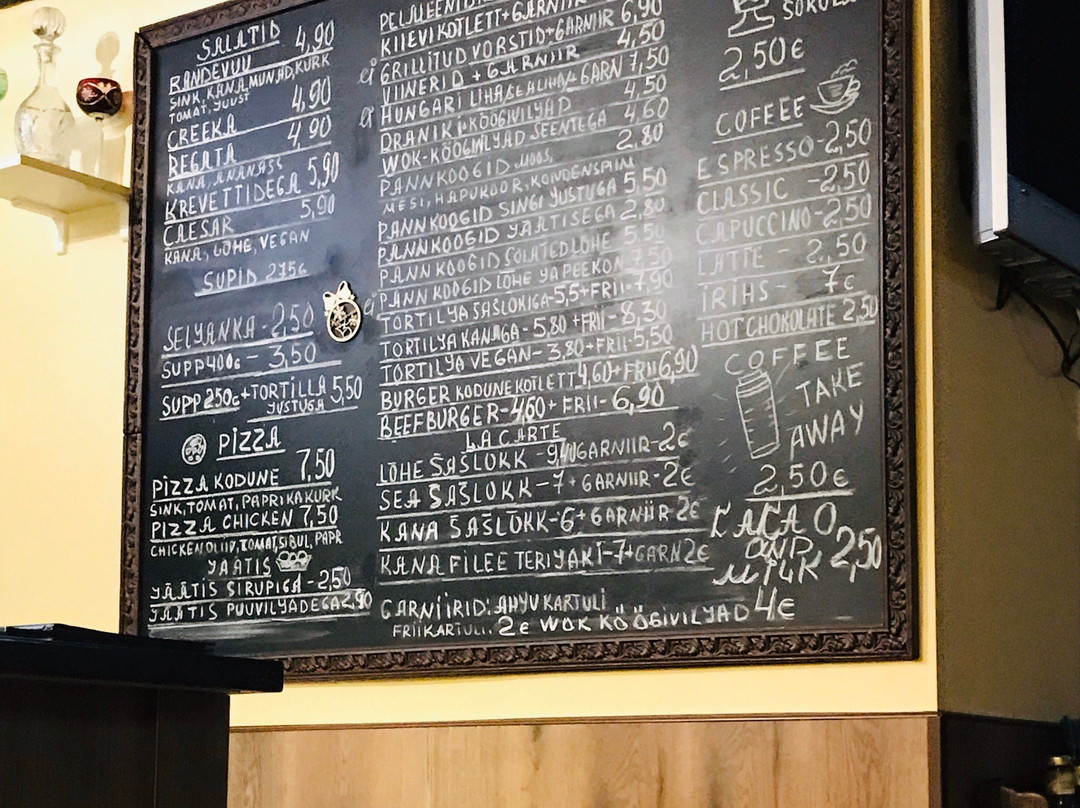 SALATID 4,90
RANDEVUU
SINK, KANA, MUNAD, KURK
TOMAT, JUUST
CREEKA 4,90
REGATA 4,90
KANA, ANANASS
KREVETTIDEGA 5,90
CAESAR 5,90
KANA, LÕHE, VEGAN
SUPID
SELYANKA - 2,50
SUPP 400G - 3,50
SUPP 250G + TORTILLA 5,50
JUSTUGA
PIZZA
PIZZA KODUNE 7,50
SINK, TOMAT, PAPRIKA KURK
PIZZA CHICKEN 7,50
CHICKEN OLIIV, TOMAT, SIBUL, PAPR
YÄÄTIS
YÄÄTIS SIRUPIGA - 2,50
YÄÄTIS PUUVILYADEGA 2,90
KIIEVI KOTLETT + GARNIIR 6,90
GRILLITUD VORSTID + GARNIIR
VIINERID + GARNIIR 4,50
HUNGARI LIHA + GARN 7,50
DRANIKI KÖÖGIVILYAD 4,50
WOK-KÖÖGIVILYAD SEENTEGA 4,60
PANNKOOGID MOOS, 2,80
MESI, HAPUKOOR, KONDENSPIIM
PANNKOOGID SINGI YUSTUGA 5,50
PANNKOOGID YÄÄTISEGA 2,80
PANNKOOGID SOLATED LÕHE 5,50
PANNKOOGID LÕHE YA PEEKON 7,50
TORTILYA SAŠLÕKIGA - 5,5 + FRII - 7,90
TORTILYA KANAGA - 5,80 + FRII - 8,30
TORTILYA VEGAN - 3,80 + FRII - 5,50
BURGER KODUNE KOTLETT 4,60 + FRII 6,90
BEEFBURGER - 4,60 + FRII - 6,90
LA CARTE
LÕHE ŠAŠLÕKK - 9,40 GARNIIR - 2€
SEA ŠAŠLÕKK - 7 + GARNIIR - 2€
KANA ŠAŠLÕKK - 6 + GARNIIR 2€
KANA FILEE TERIYAKI - 7 + GARN 2€
GARNIIRID: AHYUKARTULI
FRIIKARTULI. 2€ WOK KÖÖGIVILYAD 4€
2,50€
COFFEE
ESPRESSO - 2,50
CLASSIC - 2,50
CAPUCCINO - 2,50
LATTE 2,50
IRIHS - 7€
HOT CHOKOLATE 2,50
COFFEE
TAKE
AWAY
2,50€
CACAO
AND
MILK 2,50